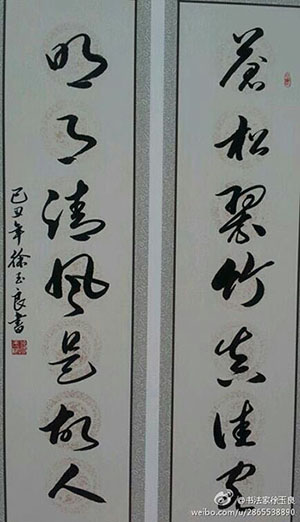 苍松翠竹真佳客
明月清风是故人
己丑年徐玉良书
@书法家徐玉良
weibo.com/u/2865538890